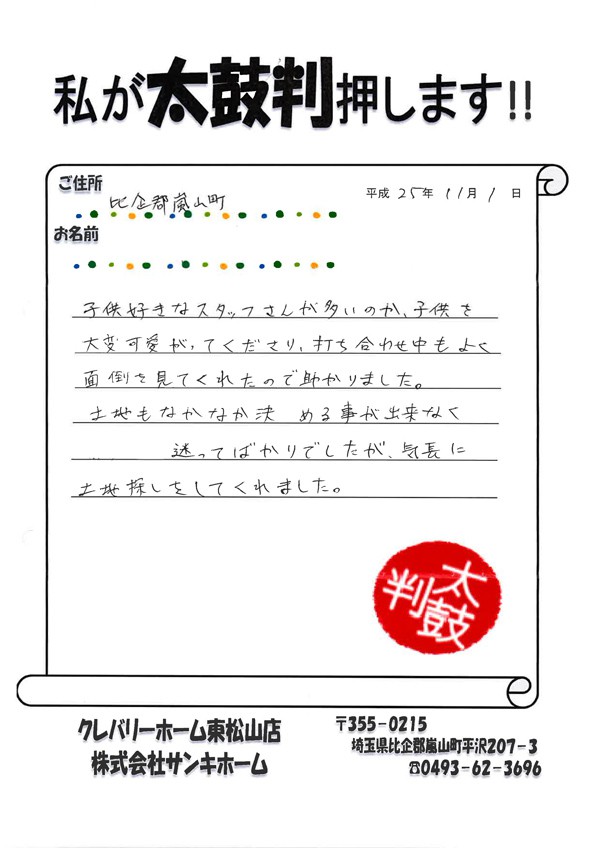 私が太鼓判押します!!
ご住所
比企郡嵐山町
平成 25年 11月 1 日
お名前
子供好きなスタッフさんが多いのか、子供を
大変可愛がってくださり、打ち合わせ中もよく
面倒を見てくれたので助かりました。
土地もなかなか決 める事が出来なく
迷ってばかりでしたが、気長に
土地探しをしてくれました。
太鼓判
クレバリーホーム東松山店
株式会社サンキホーム
〒355-0215
埼玉県比企郡嵐山町平沢207-3
☎0493-62-3696